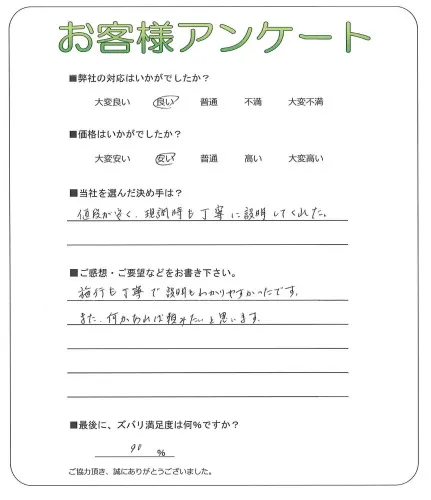 お客様アンケート
■弊社の対応はいかがでしたか?
大変良い 良い 普通 不満 大変不満
■価格はいかがでしたか?
大変安い 安い 普通 高い 大変高い
■当社を選んだ決め手は?
値段が安く、現調時も丁寧に説明してくれた。
■ご感想・ご要望などをお書き下さい。
施行も丁寧で説明もわかりやすかったです。
また、何かあれば頼みたいと思います。
■最後に、ズバリ満足度は何%ですか?
90 %
ご協力頂き、誠にありがとうございました。